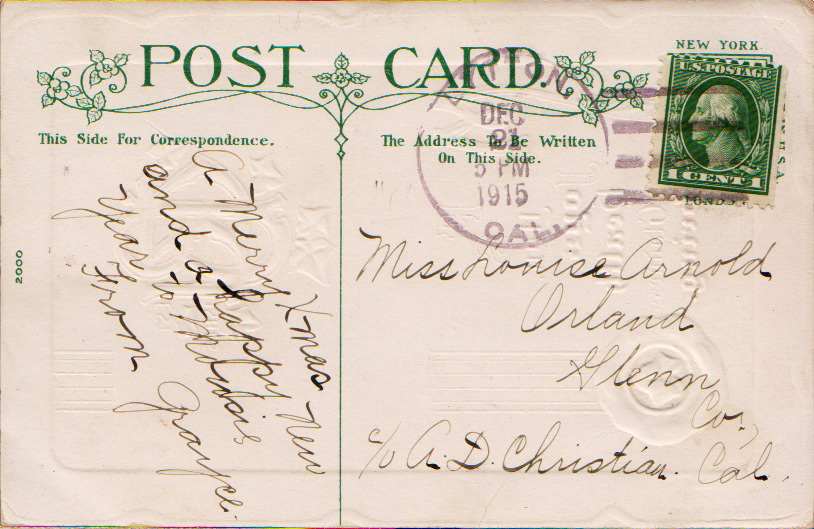 POST CARD.
NEW YORK
U.S. POSTAGE
1 CENT 1
U.S.A.
This Side For Correspondence.
The Address To Be Written
On This Side.
DEC
21
5 PM
1915
CAL.
2000
A Merry Xmas
and a happy New
Year to
From
Grayce.
Miss Louise Arnold
Orland
Glenn
Co.,
c/o A. D. Christian. Cal.